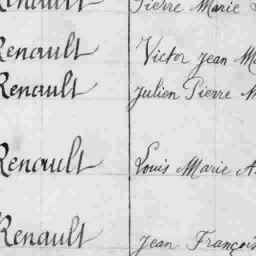 Renault Pierre Marie
Renault Victor Jean
Renault Julien Pierre
Renault Louis Marie
Renault Jean François